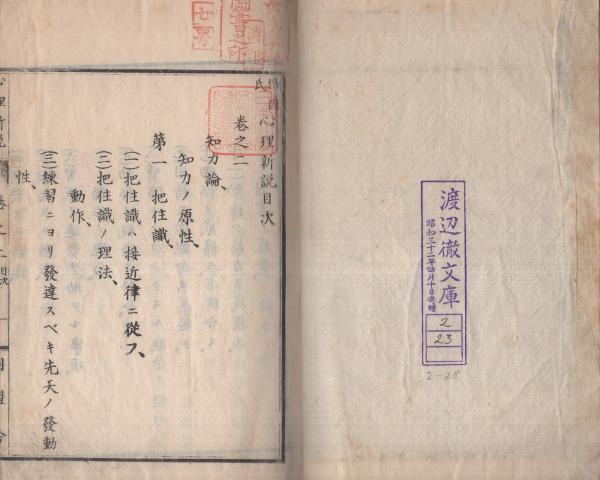 渡辺徹文庫
昭和三十二年四月十日寄贈
2
23
2-25
倍因氏心理新説目次
巻之二
知力論、
知力ノ原性、
第一 把住識、
(一)把住識ハ接近律ニ從フ、
(二)把住識ノ理法、
動作、
(三)練習ニヨリ發達スベキ先天ノ發動
性、
心理新説
巻之二目次
一
同盟舎